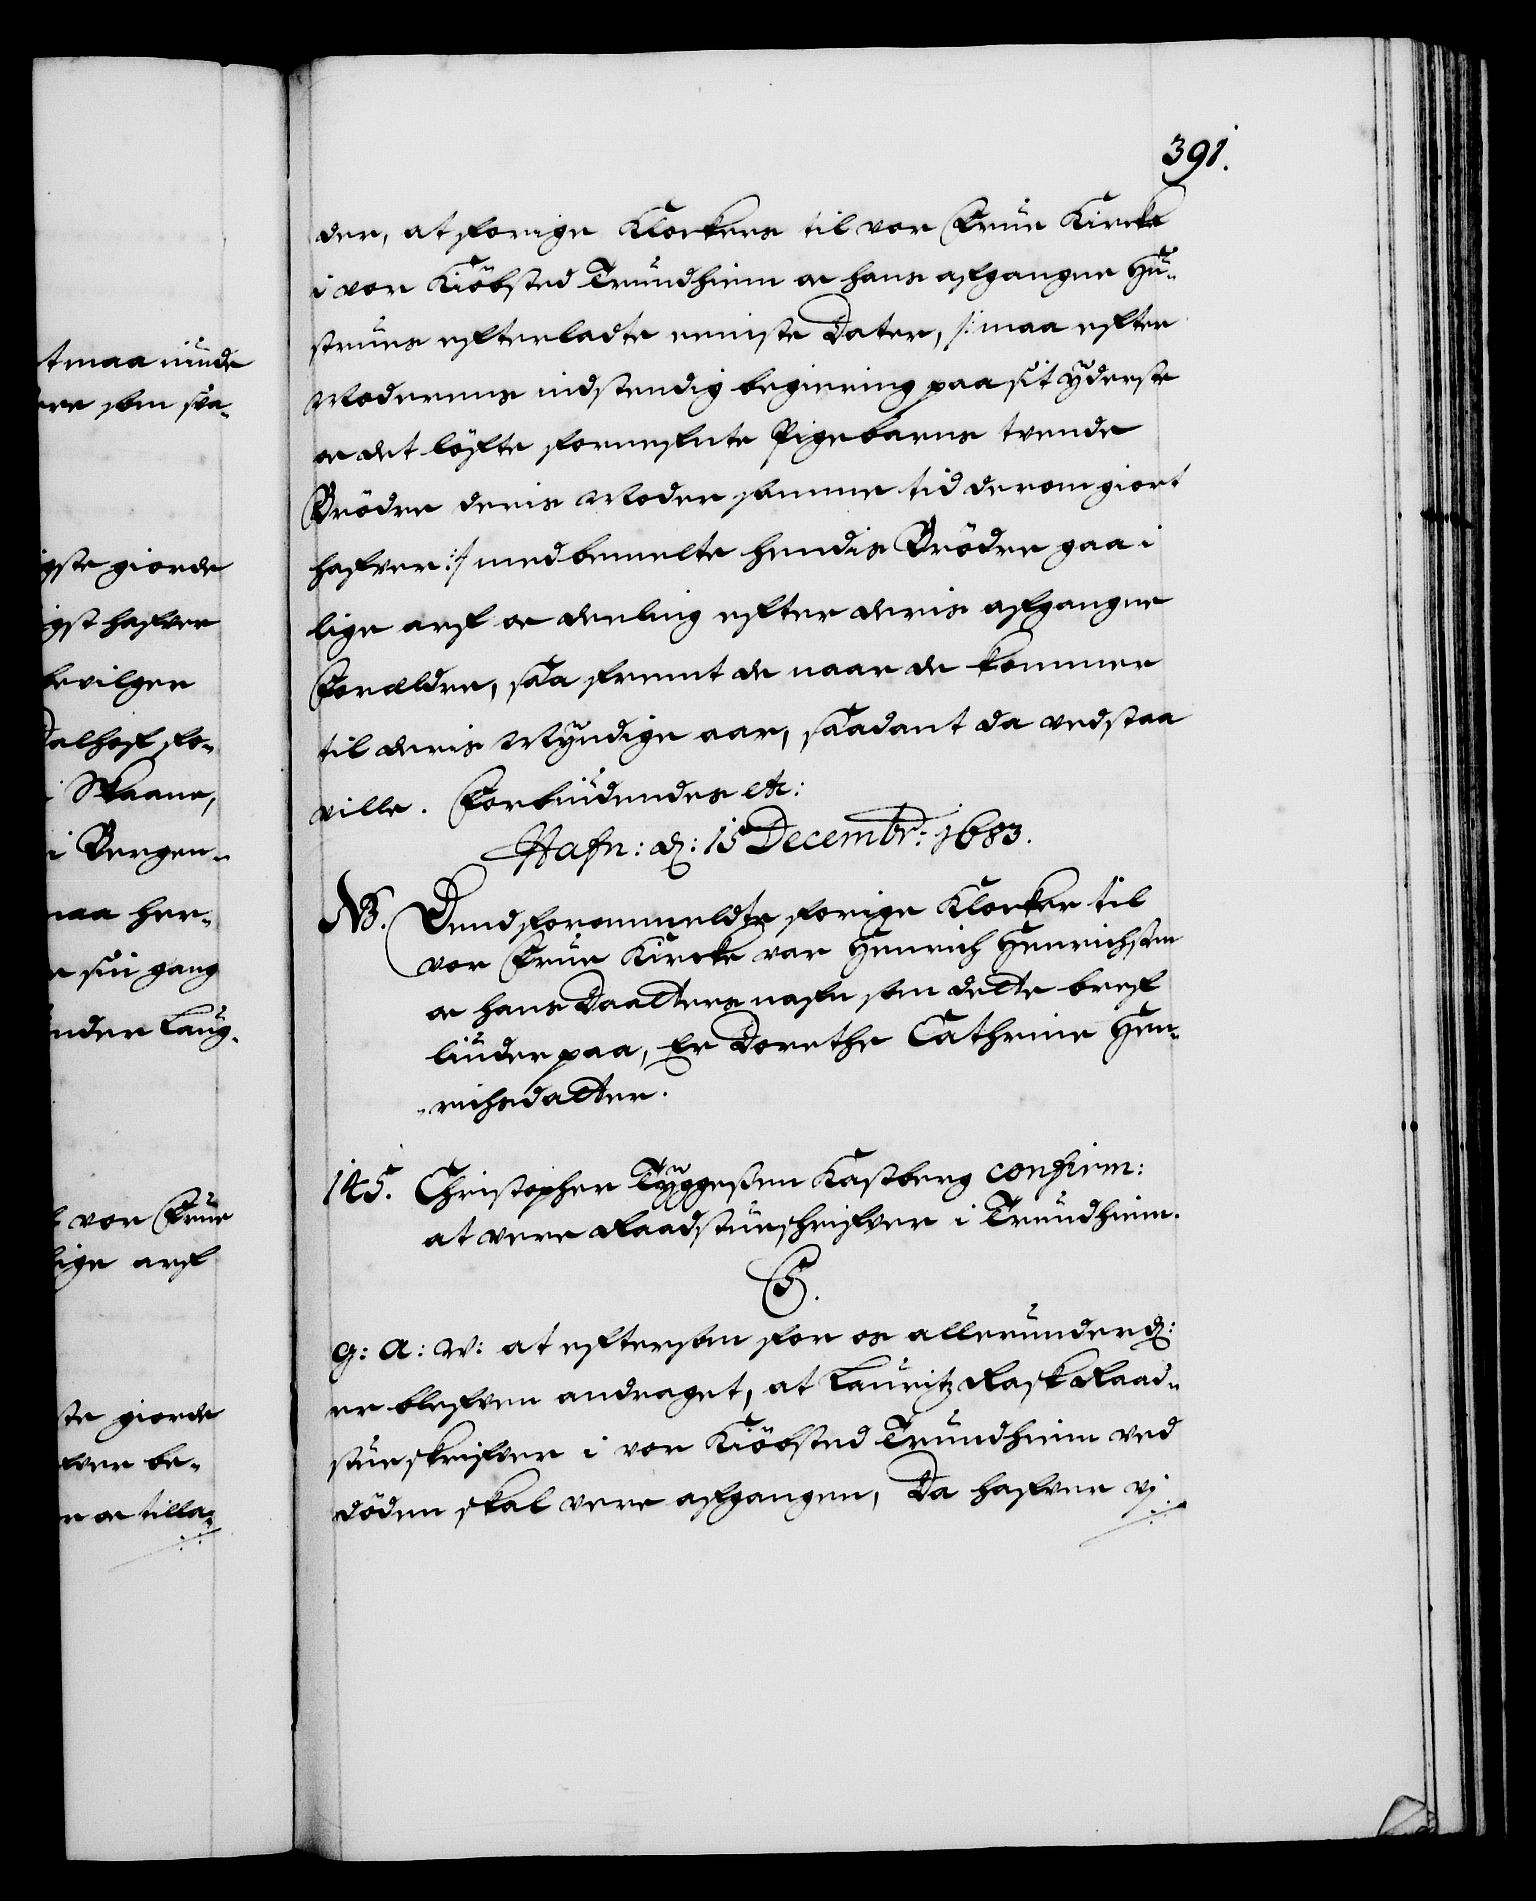 391.
der, at forige Klockers til vor Frue Kircke
i vor Kiöbsted Trundhiem oc hans afgangne Hu-
strues efterladte eeniste Dater, /: maa efter
Moderens indstendig begiering paa sit yderste
oc det löfte fornefnte Pigebarns tvende
Brödre deris Moder samme tid derom giort
hafver :/ med bemelte hendis Brödre gaa i
lige arf oc deeling efter deris afgangne
Forældre, saa fremt de naar de kommer
til deris Myndige aar, saadant da vedstaa
ville. Forbiudendes etc:
Hafn: d: 15 Decembr: 1683.
NB. Dend forommeldte forige Klocker til
vor Frue Kircke var Henrich Henrichsen
oc hans Daatters nafn som dette bref
liuder paa, Er Dorethe Cathrine Hen-
richsdatter.
145. Christopher Tÿggesen Kastberg confirm:
at vere Raadstueschrifver i Trundhiem.
C5.
G: A: W: at eftersom for os allerunderd:
er blefven andraget, at Lauritz Rask Raad-
stueskrifver i vor Kiöbsted Trundhiem ved
döden skal vere afgangen, Da hafver vj
tmaa iunde
ere som sva-
igste giorde
igst hafver
bevilger
Dalhof fo-
i Skaane,
i Bergen-
maa her-
e sin gang
under Laug-
vor Frue
lige arf
ste giorde
fver be-
er oc tilla-